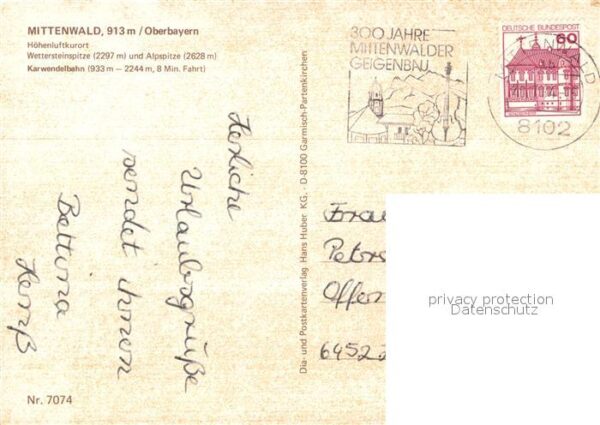 MITTENWALD, 913 m / Oberbayern
Höhenluftkurort
Wettersteinspitze (2297 m) und Alpspitze (2628 m)
Karwendelbahn (933 m — 2244 m, 8 Min. Fahrt)
300 JAHRE
MITTENWALDER
GEIGENBAU
DEUTSCHE BUNDESPOST
60
8102
Herzliche
Urlaubsgrüße
sendet ihnen
Bettina
Dia- und Postkartenverlag Hans Huber KG. · D-8100 Garmisch-Partenkirchen
Frau
Peters
Offen
6452
privacy protection
Datenschutz
Nr. 7074